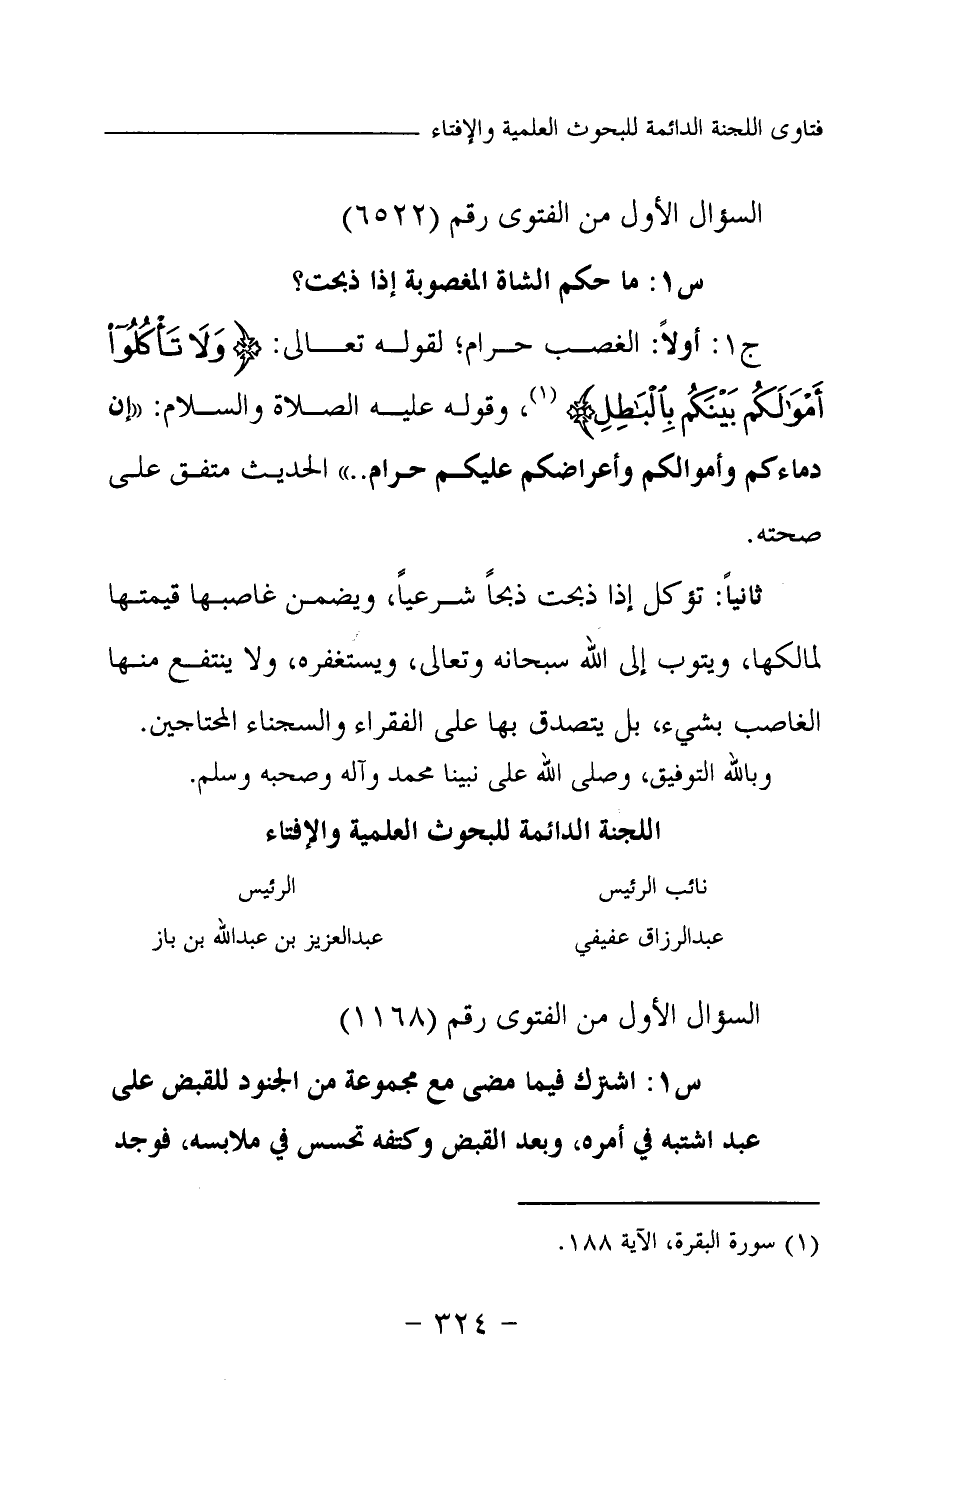 فتاوى اللجنة الدائمة للبحوث العلمية والإفتاء
السؤال الأول من الفتوى رقم (٦٥٢٢)
س١: ما حكم الشاة المغصوبة إذا ذبحت؟
ج١: أولاً: الغصب حرام؛ لقوله تعالى: ﴿وَلَا تَأْكُلُوٓا۟
أَمْوَٰلَكُم بَيْنَكُم بِٱلْبَٰطِلِ﴾ (١)، وقوله عليه الصلاة والسلام: «إن
دماءكم وأموالكم وأعراضكم عليكم حرام..» الحديث متفق على
صحته.
ثانياً: تؤكل إذا ذبحت ذبحاً شرعياً، ويضمن غاصبها قيمتها
لمالكها، ويتوب إلى الله سبحانه وتعالى، ويستغفره، ولا ينتفع منها
الغاصب بشيء، بل يتصدق بها على الفقراء والسجناء المحتاجين.
وبالله التوفيق، وصلى الله على نبينا محمد وآله وصحبه وسلم.
اللجنة الدائمة للبحوث العلمية والإفتاء
نائب الرئيس الرئيس
عبدالرزاق عفيفي عبدالعزيز بن عبدالله بن باز
السؤال الأول من الفتوى رقم (١١٦٨)
س١: اشترك فيما مضى مع مجموعة من الجنود للقبض على
عبد اشتبه في أمره، وبعد القبض وكتفه تحسس في ملابسه، فوجد
(١) سورة البقرة، الآية ١٨٨.
- ٣٢٤ -